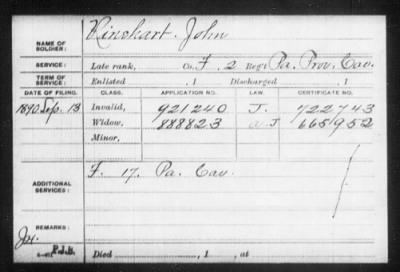 NAME OF SOLDIER: Rinehart, John
SERVICE: Late rank, Co. F. 2 Reg't Pa. Prov. Cav.
TERM OF SERVICE: Enlisted , 1 Discharged , 1
DATE OF FILING. CLASS. APPLICATION NO. LAW. CERTIFICATE NO.
1890 Sep. 13 Invalid, 921240 J. 722743
Widow, 888823 a. J 665952
Minor,
ADDITIONAL SERVICES: F. 17. Pa. Cav.
REMARKS:
P.I.B.
Died , 1 , at